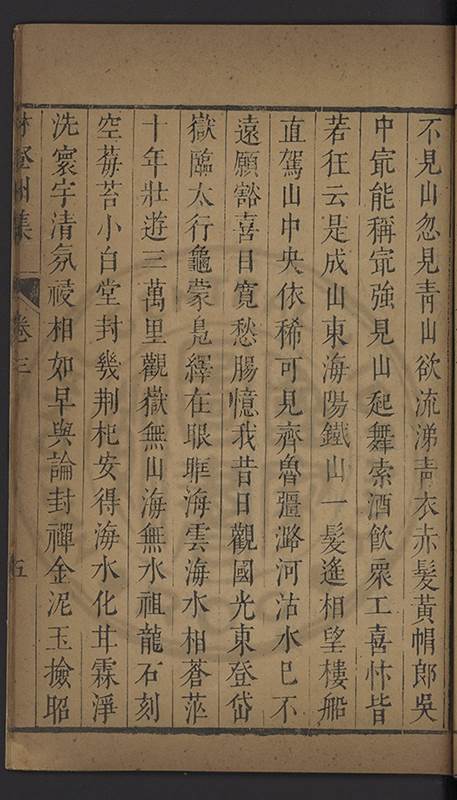 不見山忽見青山欲流涕青衣赤髮黃帽郎吳
中䆮能稱䆮強見山起舞索酒飲眾工喜忭皆
若狂云是成山東海陽鐵山一髮遙相望樓船
直駕山中央依稀可見齊魯疆潞河沽水已不
遠願豁喜目寬愁腸憶我昔日觀國光東登岱
嶽臨太行龜蒙鳧繹在眼眶海雲海水相蒼茫
十年壯遊三萬里觀嶽無山海無水祖龍石刻
空莓苔小白堂封幾荆杞安得海水化甘霖淨
洗寰宇清氛祲相如早與論封禪金泥玉撿昭
集 卷三 五